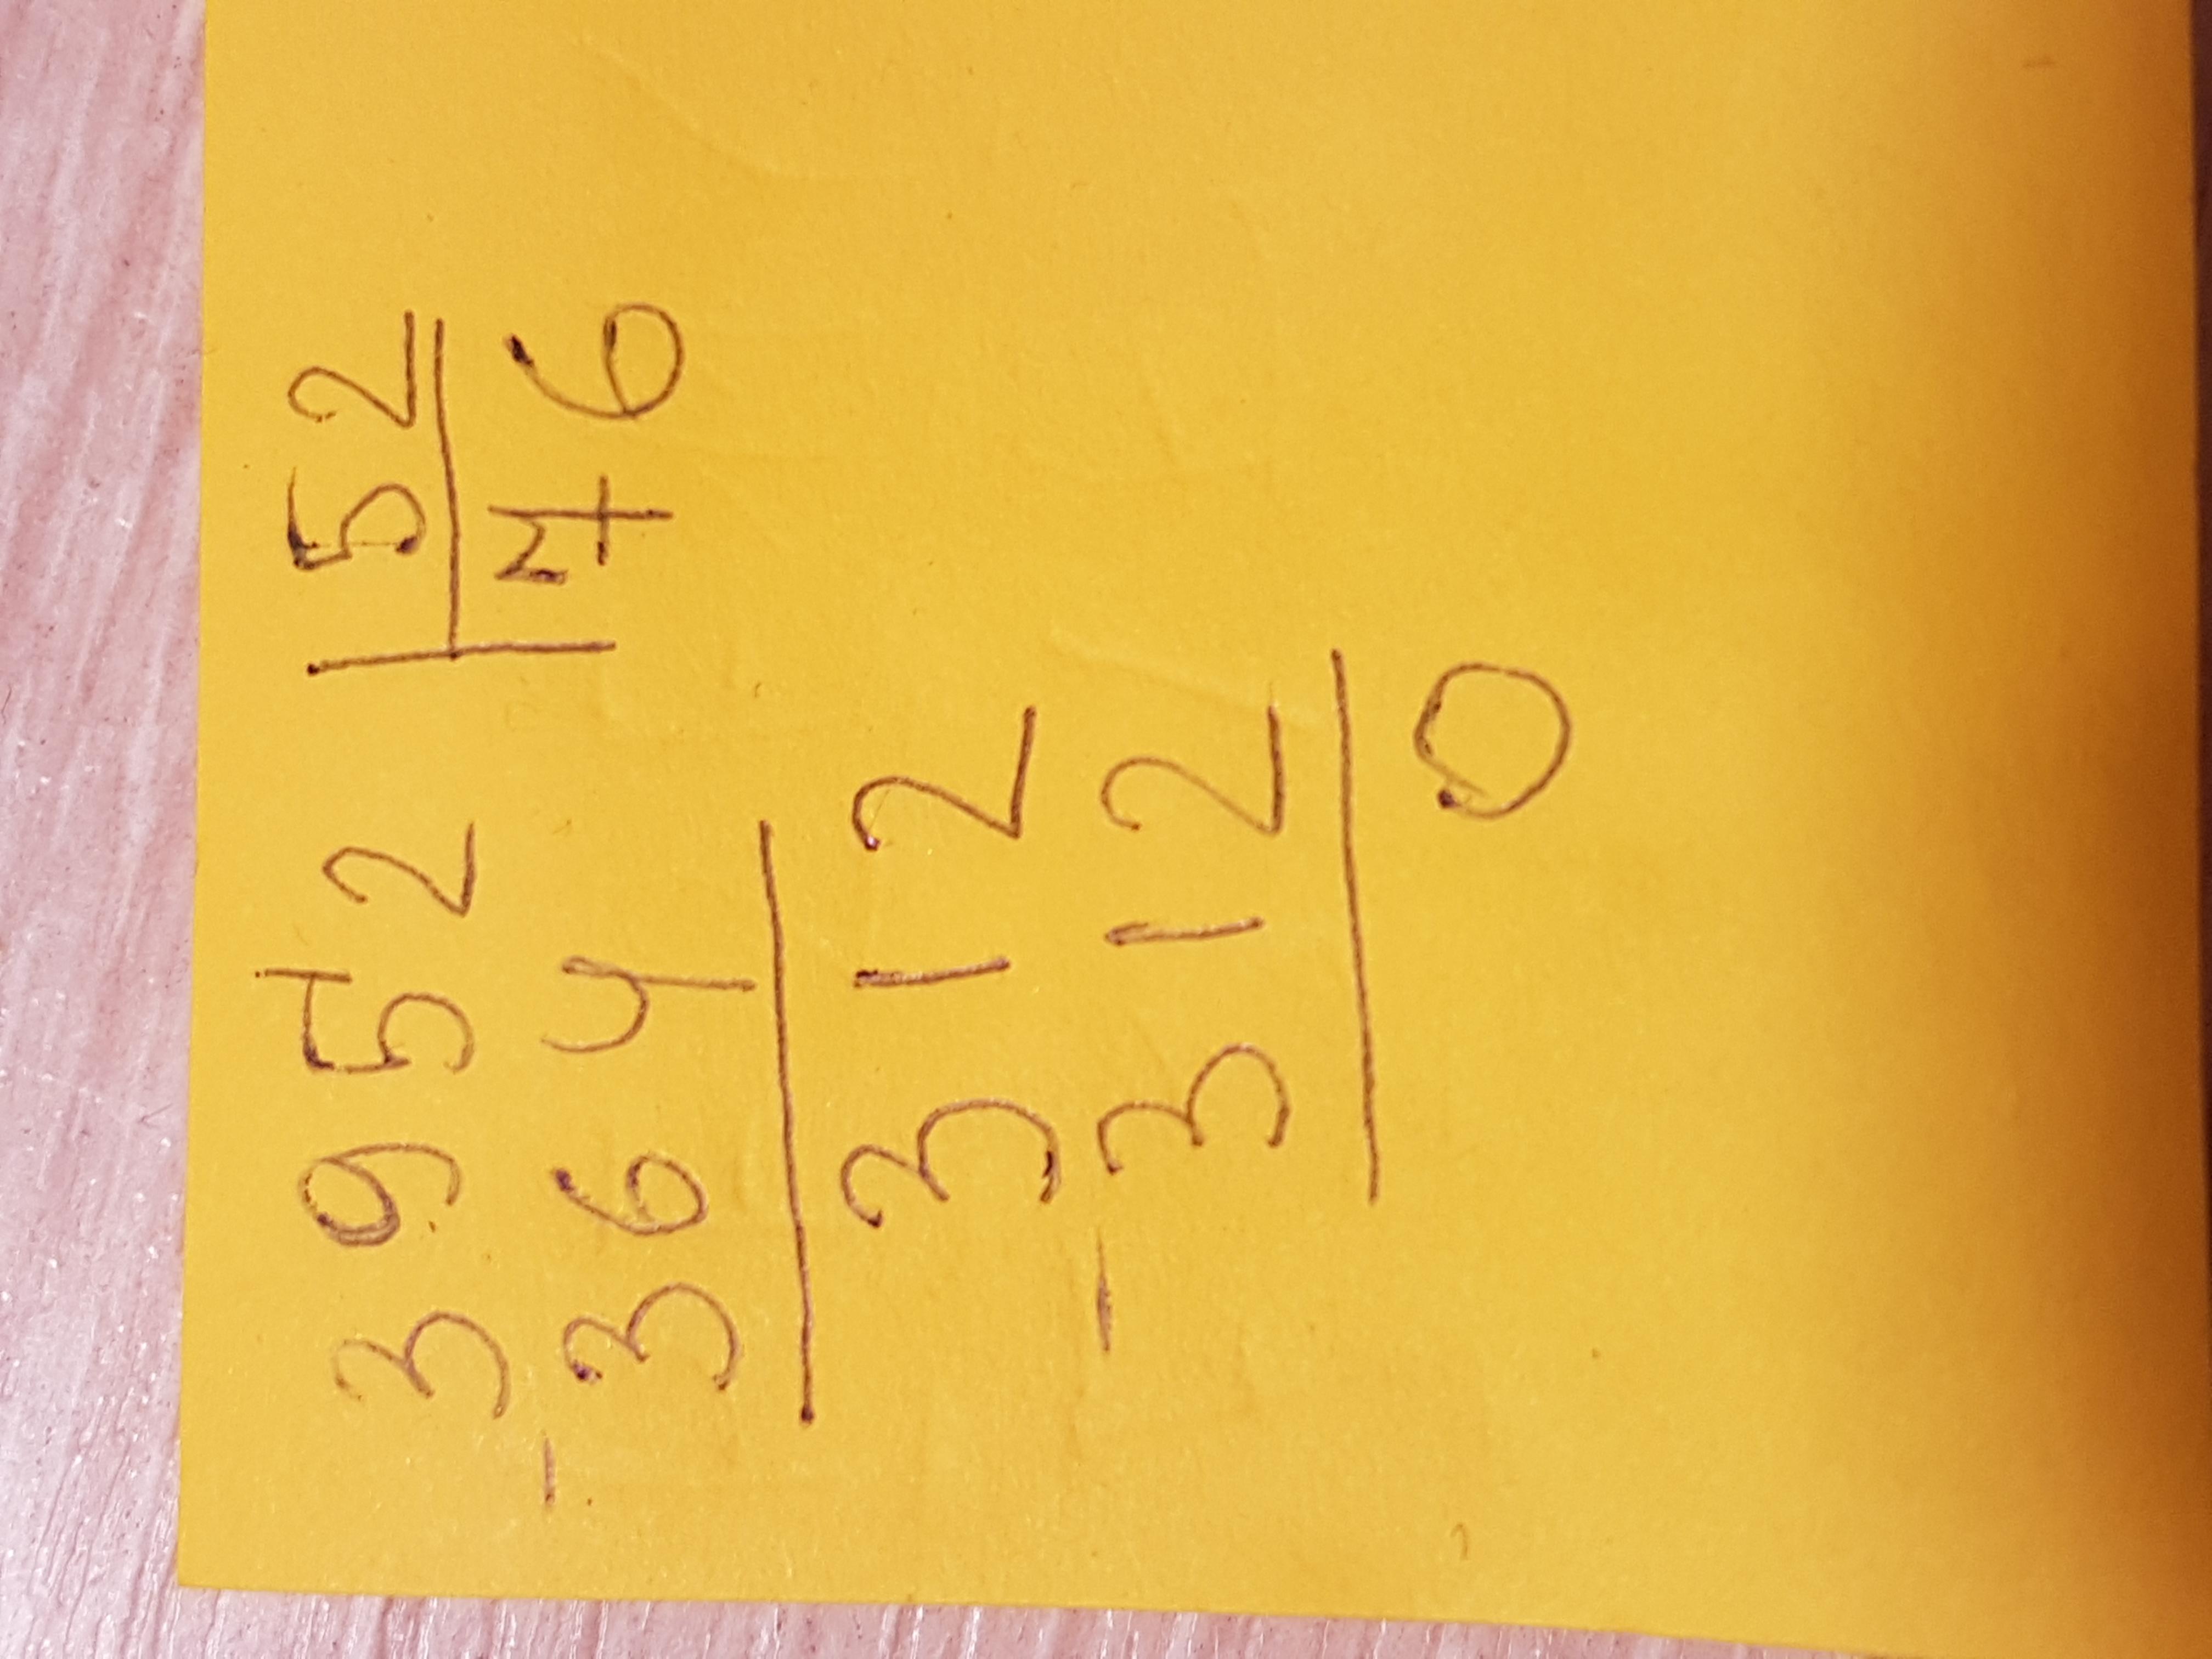 3952 | 52
- 364 | 76
312
- 312
0